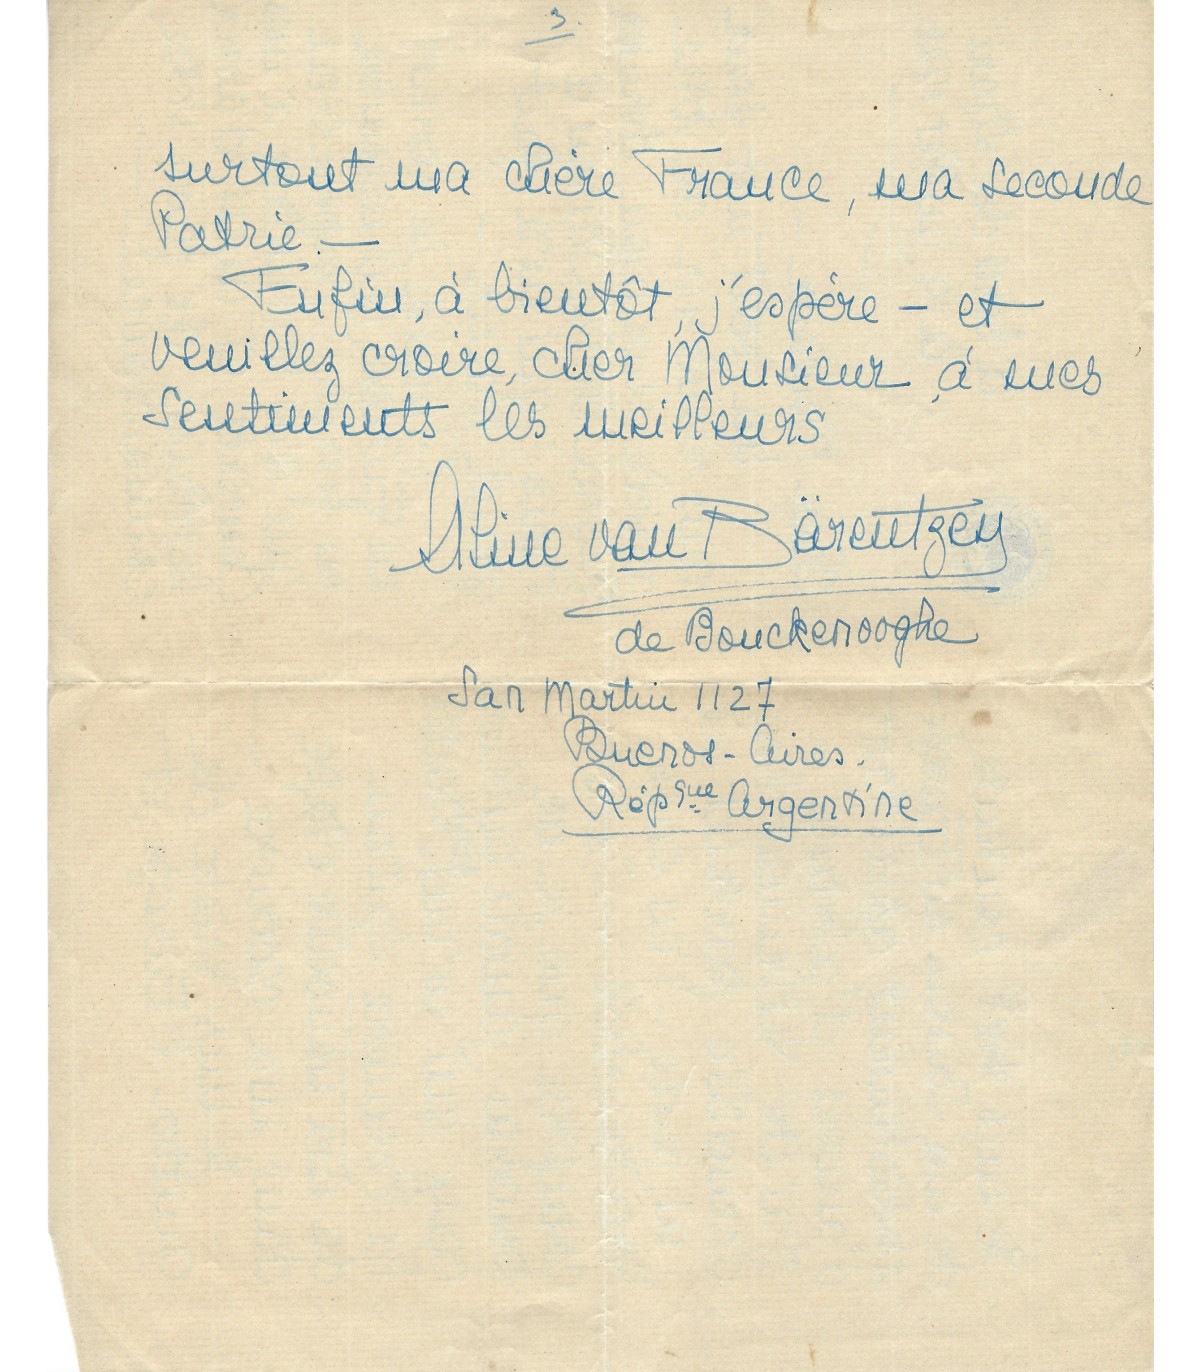 3.
surtout ma chère France, ma seconde
Patrie. —
Enfin, à bientôt, j'espère — et
veuillez croire, cher Monsieur, à mes
sentiments les meilleurs
Aline van Bärentzen
de Bouckenooghe
San Martin 1127
Buenos-Aires.
Répque Argentine